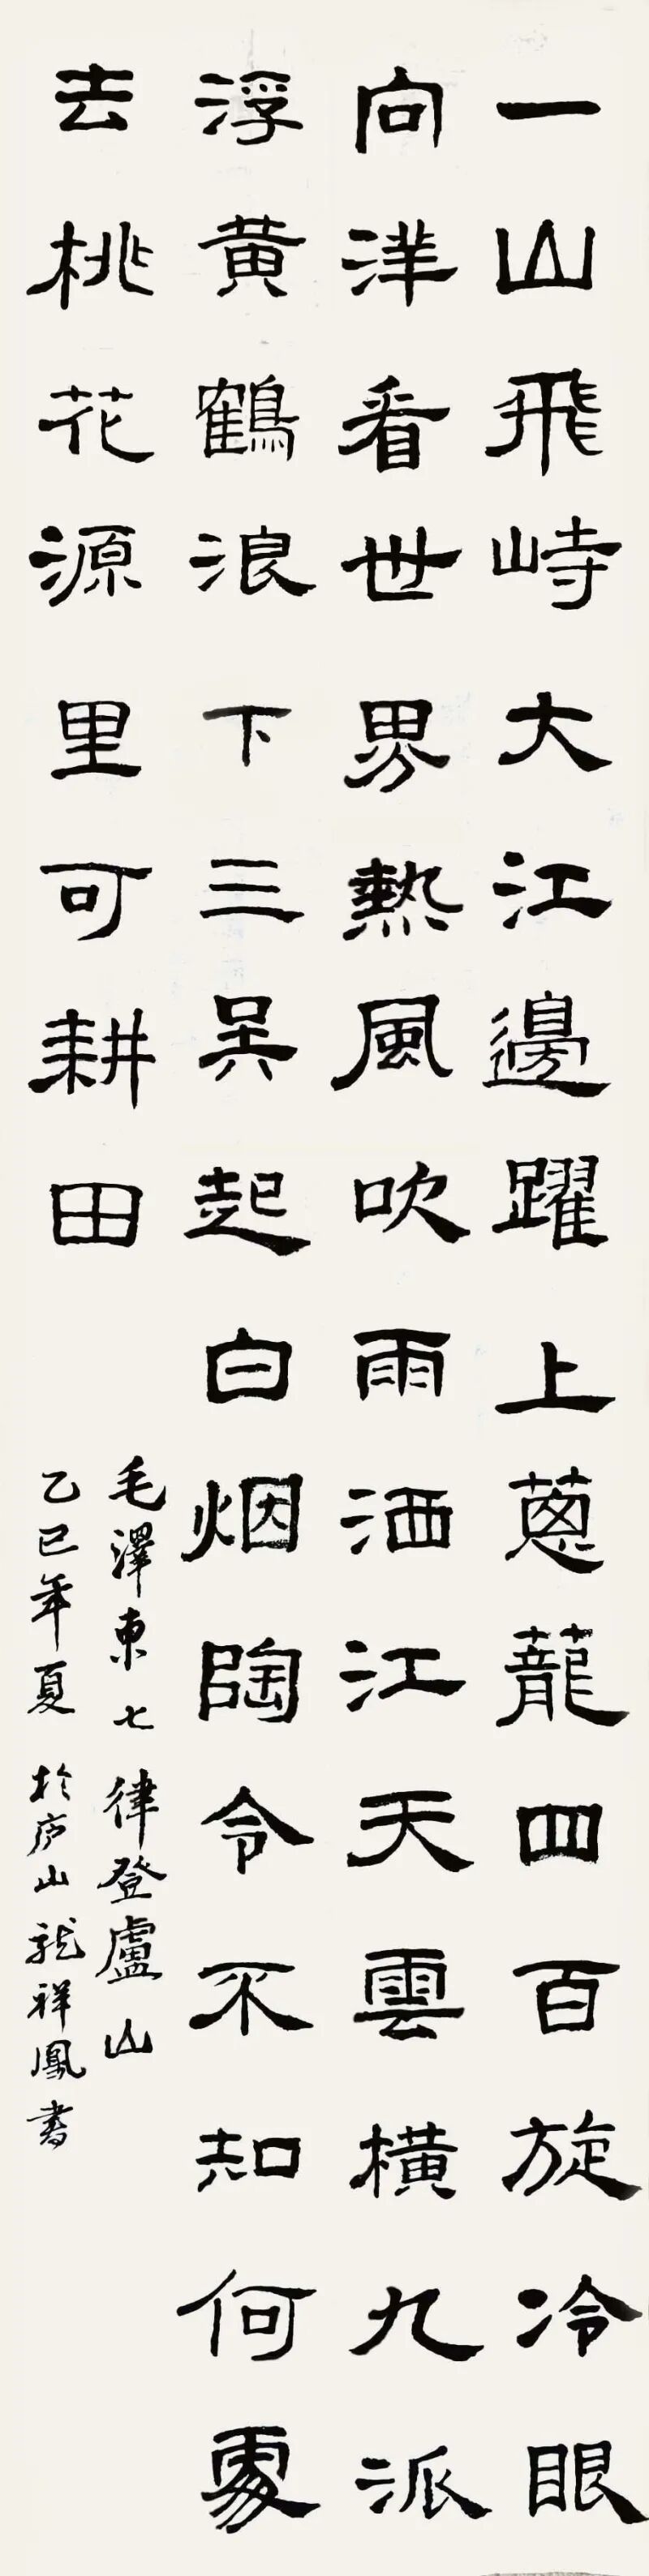 一山飛峙大江邊躍上蔥蘢四百旋冷眼
向洋看世界熱風吹雨洒江天雲橫九派
浮黃鶴浪下三吳起白烟陶令不知何處
去桃花源里可耕田
毛澤東七律登廬山
乙巳年夏於庐山龍祥鳳書